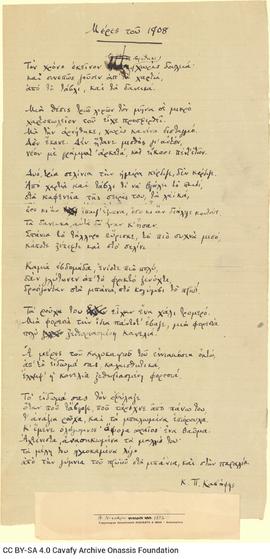 Μέρες του 1908
Τον χρόνο εκείνον βρέθηκε χωρίς δουλειά·
και συνεπώς ζούσεν απ' τα χαρτιά,
από το τάβλι, και τα δανεικά.
Μια θέσις, τριώ λιρών τον μήνα, σε μικρό
χαρτοπωλείον του είχε προσφερθεί.
Μα την αρνήθηκε, χωρίς κανένα δισταγμό.
Δεν έκανε. Δεν ήτανε μισθός γι' αυτόν,
νέον με γράμματ' αρκετά, και είκοσι πέντ' ετών.
Δυο, τρία σελίνια την ημέρα κέρδιζε, δεν κέρδιζε.
Από χαρτιά και τάβλι τι να βγάλει το παιδί,
στα καφενεία της σειράς του, τα λαϊκά,
όσο κι αν έπαιζ' έξυπνα, όσο κι αν διάλεγε κουτούς.
Τα δανεικά, αυτά δα ήσαν κ' ήσαν.
Σπάνια το τάλληρο εύρισκε, το πιο συχνά μισό,
κάποτε ξέπεφτε και στο σελίνι.
Καμιά εβδομάδα, ενίοτε πιο πολύ,
σαν γλύτωνεν απ' το φρικτό ξενύχτι,
δροσίζονταν στα μπάνια, στο κολύμβι το πρωί.
Τα ρούχα του είχαν ένα χάλι τρομερό.
Μια φορεσιά την ίδια πάντοτ' έβαζε, μια φορεσιά
πολύ ξεθωριασμένη κανελιά.
Α μέρες του καλοκαιριού του εννιακόσια οκτώ,
απ' το είδωμά σας, καλαισθητικά,
έλειψ' η κανελιά ξεθωριασμένη φορεσιά.
Το είδωμά σας τον εφύλαξε
όταν που τάβγαζε, που τάριχνε από πάνω του,
τ' ανάξια ρούχα, και τα μπαλωμένα εσώρουχα.
Κ' έμενε ολόγυμνος· άψογα ωραίος· ένα θαύμα.
Αχτένιστα, ανασηκωμένα τα μαλλιά του·
τα μέλη του ηλιοκαμένα λίγο
από την γύμνια του πρωιού στα μπάνια, και στην παραλία.
Κ. Π. Καβάφης
CC BY-SA 4.0 Cavafy Archive Onassis Foundation